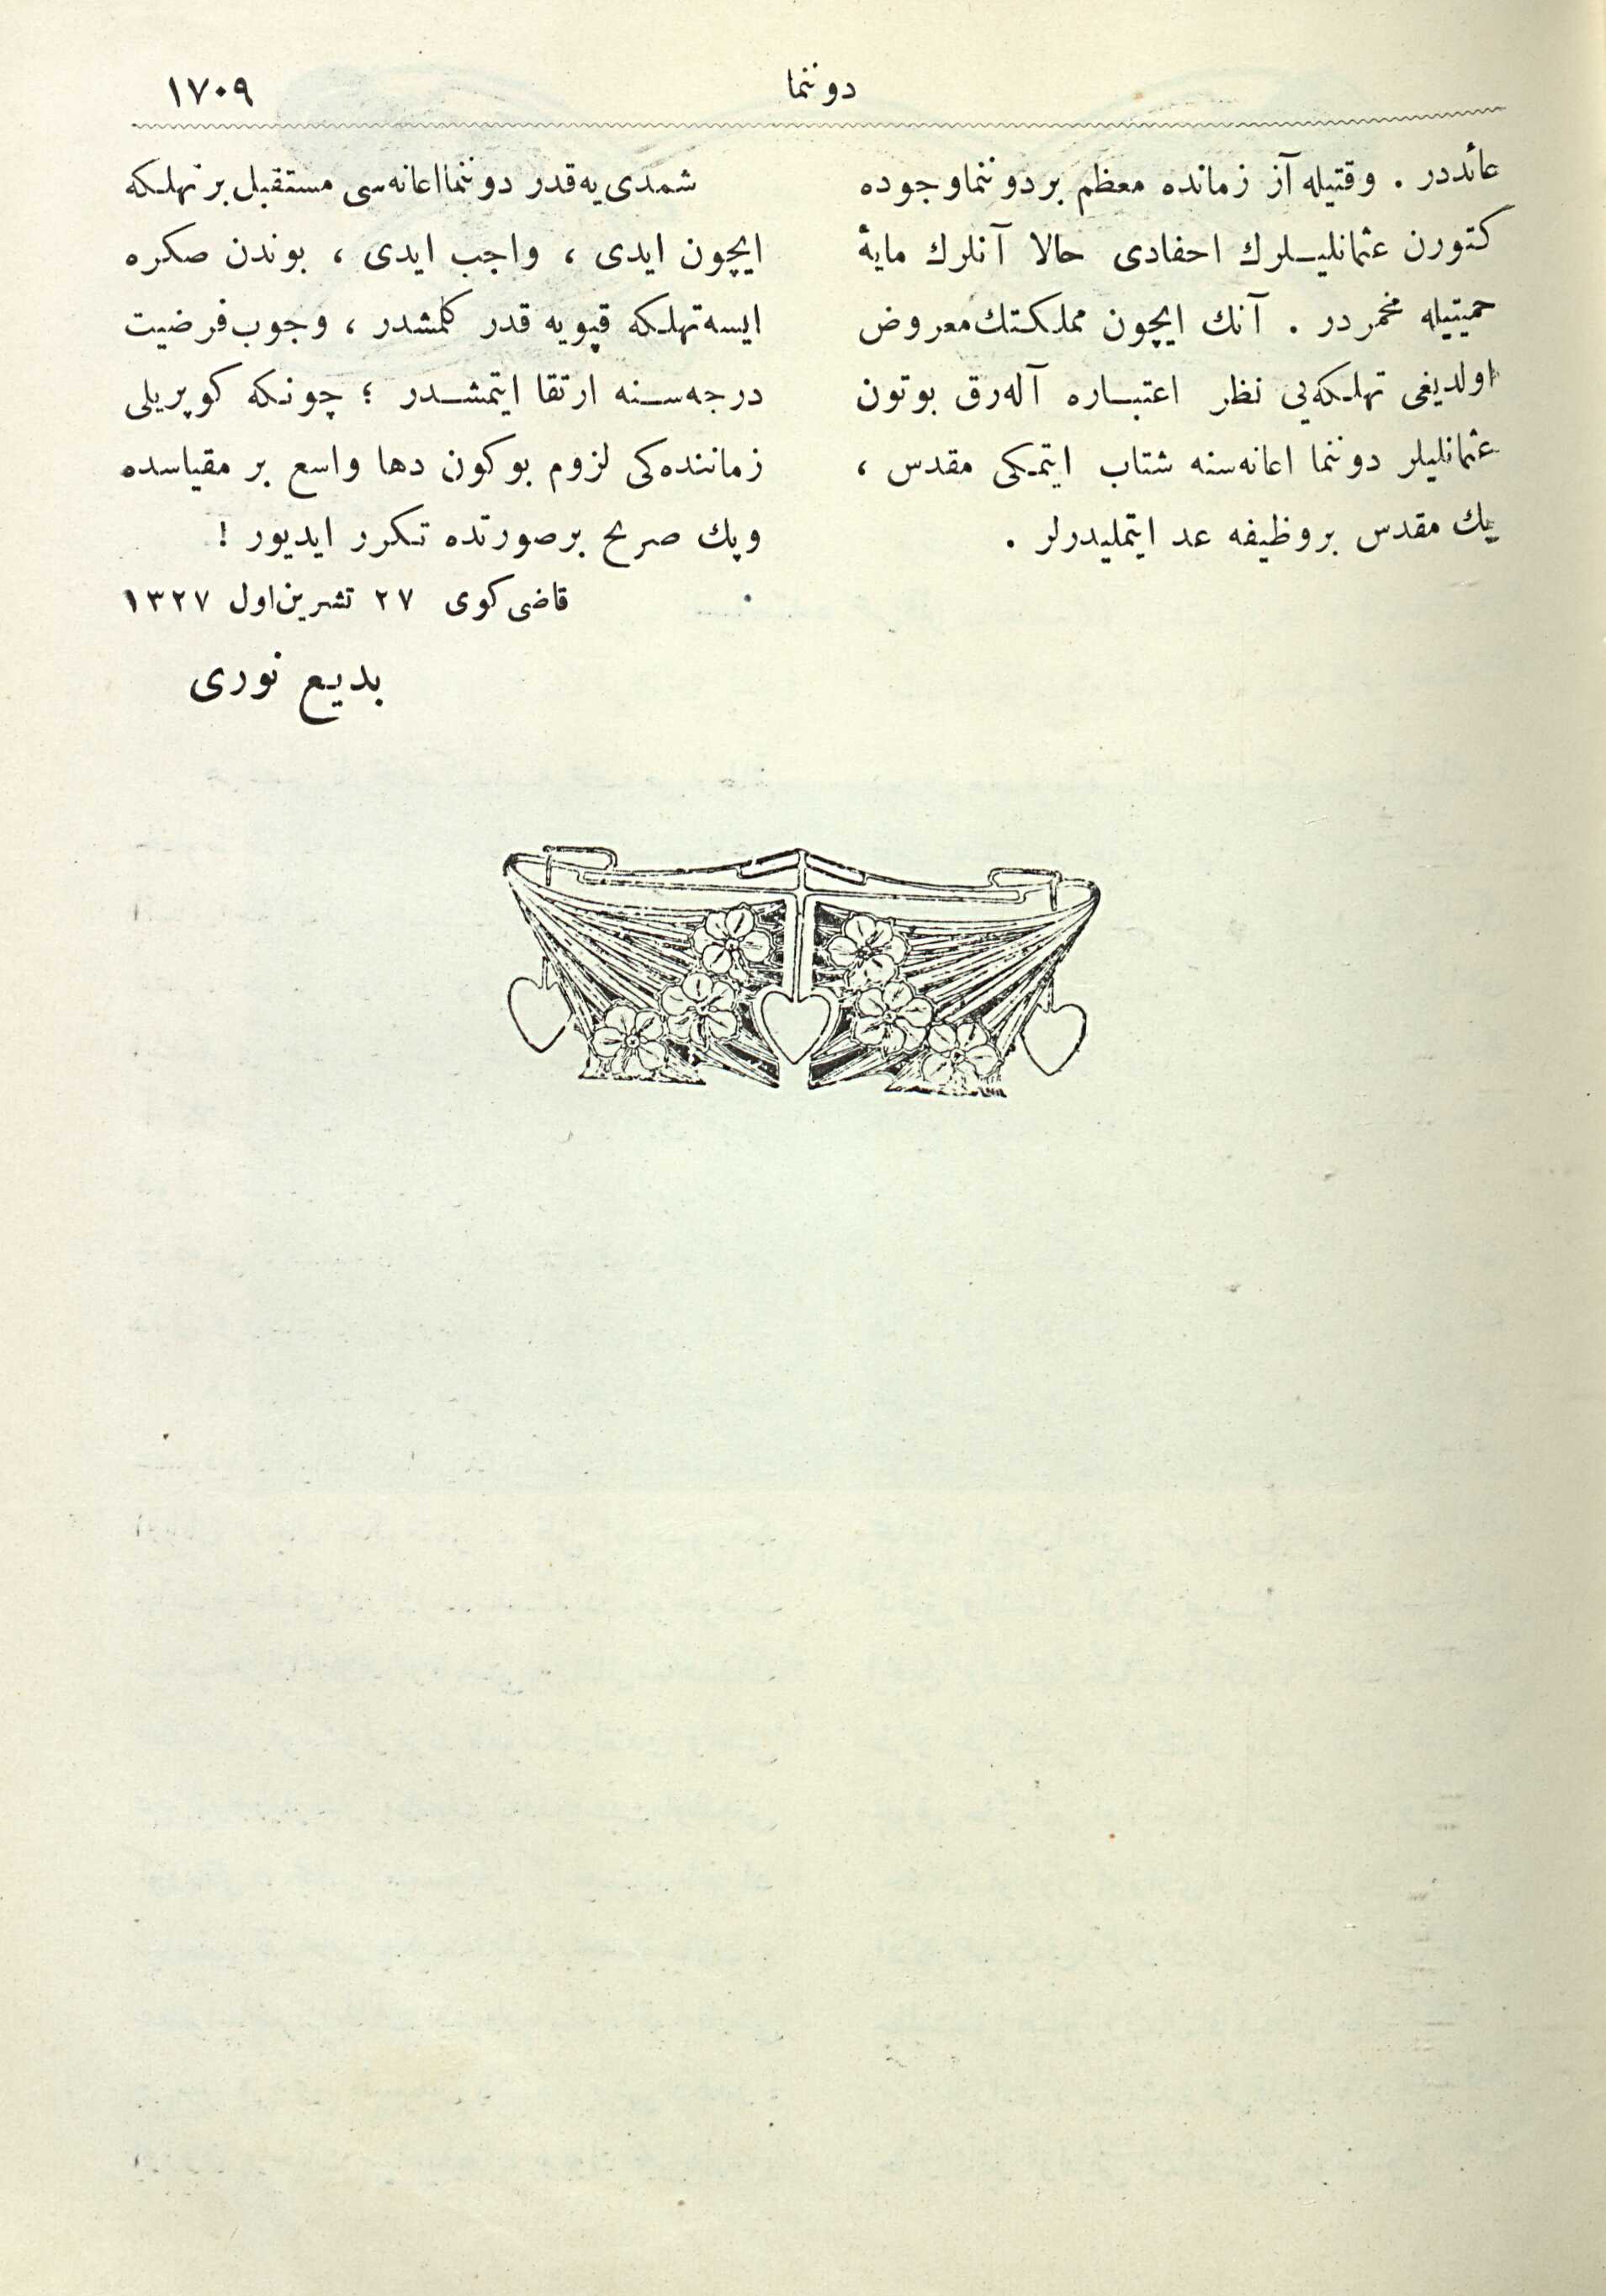 دوننما
١٧٠٩
عائددر . وقتيله آز زمانده معظم بر دوننما وجوده
كتورن عثمانليلرك احفادى حالا آنلرك مايهٔ
حميتيله مخمردر . آنك ايچون مملكتك معروض
اولديغى تهلكه‌يى نظر اعتباره آله‌رق بوتون
عثمانليلر دوننما اعانه‌سنه شتاب ايتمكى مقدس ،
پك مقدس بر وظيفه عد ايتمليدرلر .
شمدى‌يه قدر دوننما اعانه‌سى مستقبل بر تهلكه
ايچون ايدى ، واجب ايدى ، بوندن صكره
ايسه تهلكه قپويه قدر كلمشدر ، وجوب فرضيت
درجه‌سنه ارتقا ايتمشدر ؛ چونكه كوپريلى
زماننده‌كى لزوم بوكون دها واسع بر مقياسده
وپك صريح بر صورتده تكرر ايديور !
قاضى كوى ٢٧ تشرين اول ١٣٢٧
بديع نورى